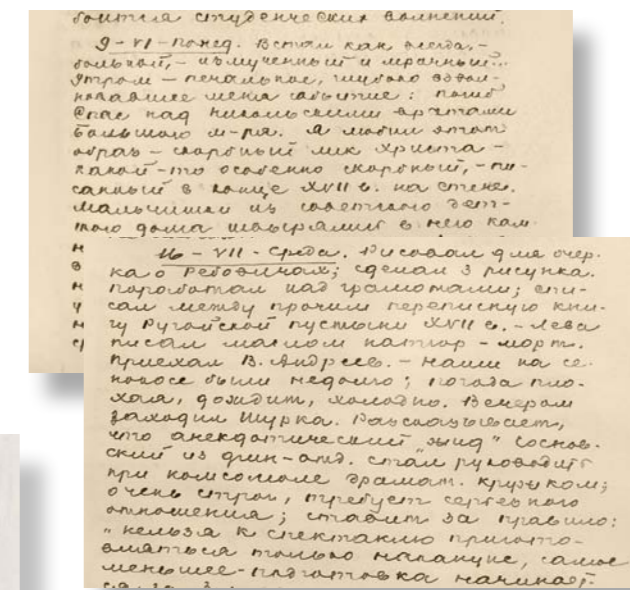 боится студенческих волнений.
9-VI-понед. Встал как всегда,-
больной,- измученный и мрачный...
Утром - печальное, глубоко взвол-
новавшее меня событие: погиб
Спас над Никольскими вратами
Большого м-ря. Я любил этот
образ - скорбный лик Христа -
какой-то особенно скорбный,- пи-
санный в конце XVII в. на стене.
Мальчишки из советского дет-
ского дома швыряли в него кам-
16 - VII - Среда. Рисовал для очер-
ка о Ребовичах; сделал 3 рисунка.
Поработал над грамотами; спи-
сал между прочим переписную кни-
гу Ругайской пустыни XVII в. - Лева
писал маслом натюр-морт.
Приехал В. Андреев. - Наши на се-
нокосе были недолго; погода пло-
хая, дождит, холодно. Вечером
заходил Шурка. Рассказывает,
что анекдотический "жид" Соснов-
ский из фин-отд. стал руководить
при комсомоле драмат. кружком;
очень строг, требует серьезного
отношения; ставит за правило:
"нельзя к спектаклю пригото-
вляться только накануне, самое
меньшее - подготовка начинает-